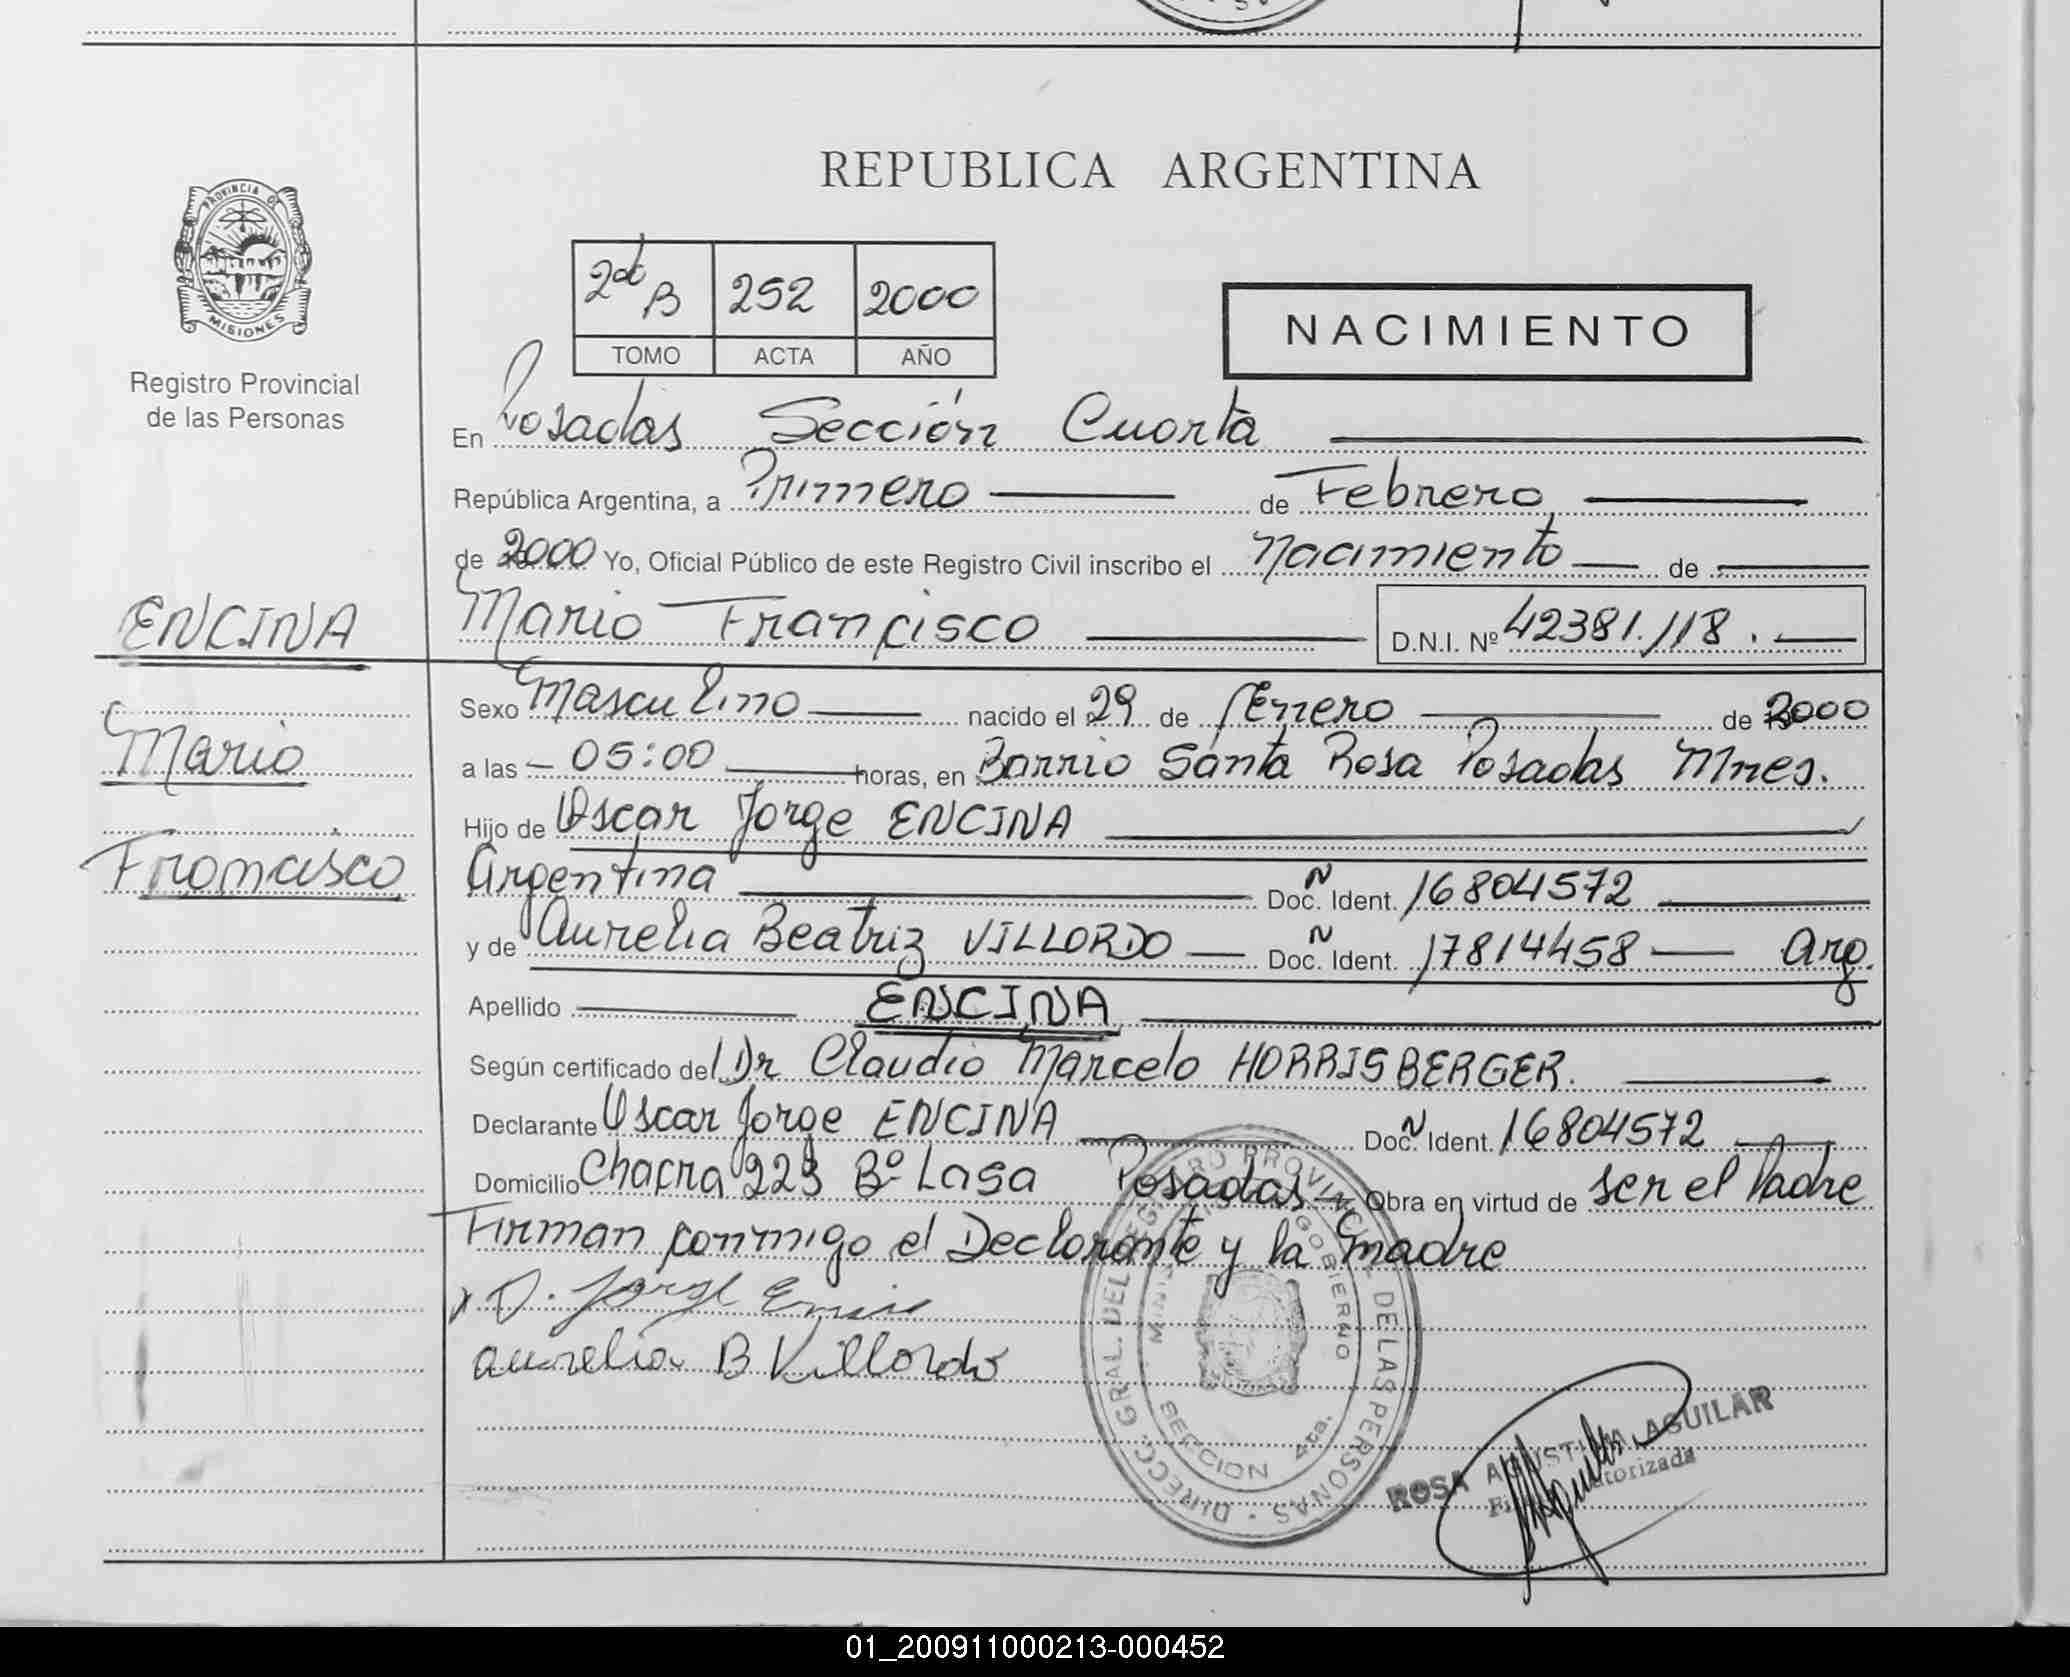 REPUBLICA ARGENTINA
PROVINCIA DE
MISIONES
Registro Provincial
de las Personas
2do B 252 2000
TOMO ACTA AÑO
NACIMIENTO
En Posadas Sección Cuarta
República Argentina, a Primero de Febrero
de 2000 Yo, Oficial Público de este Registro Civil inscribo el Nacimiento de
ENCINA
Mario Francisco D.N.I. Nº 42381.118.
Sexo Masculino nacido el 29 de Enero de 2000
Mario
a las 05:00 horas, en Barrio Santa Rosa Posadas Mnes.
Hijo de Oscar Jorge ENCINA
Francisco
Argentina Doc. N Ident. 16804572
y de Aurelia Beatriz VILLORDO Doc. N Ident. 17814458 Arg.
Apellido ENCINA
Según certificado del Dr Claudio Marcelo HORRISBERGER.
Declarante Oscar Jorge ENCINA Doc. N Ident. 16804572
Domicilio Chacra 223 Bº Lasa Posadas Obra en virtud de ser el Padre
Firman conmigo el Declarante y la madre
x O. Jorge
Aurelia B Villordo
DIRECC. GRAL. DEL REGISTRO PROVINCIAL DE LAS PERSONAS
GOBIERNO
SECCION 4ta.
ROSA AGUSTINA AGUILAR
Autorizada
01_200911000213-000452